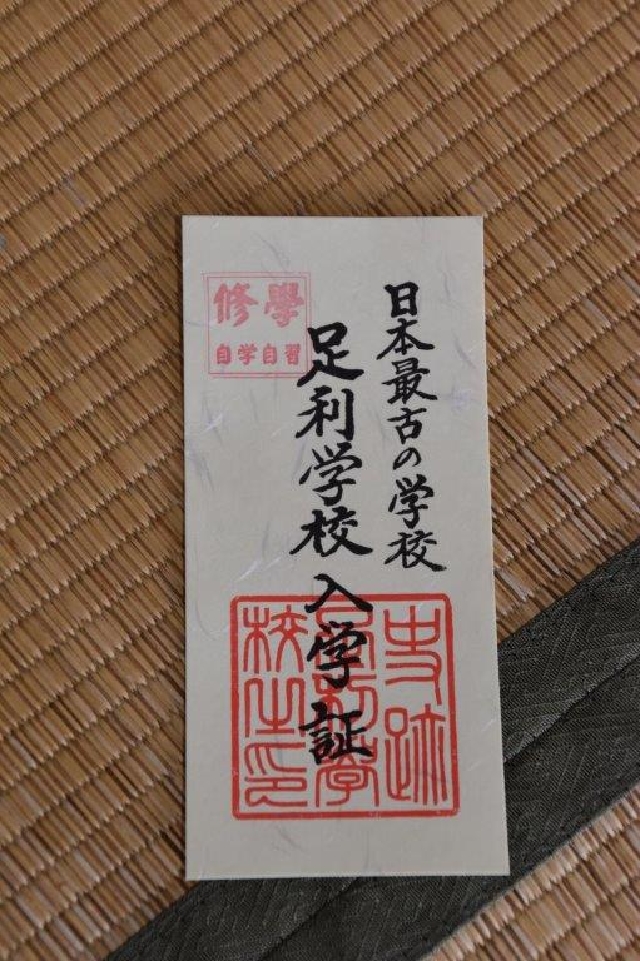 日本最古の学校
足利学校入学証
修學
自学自習
史跡足利學校之印